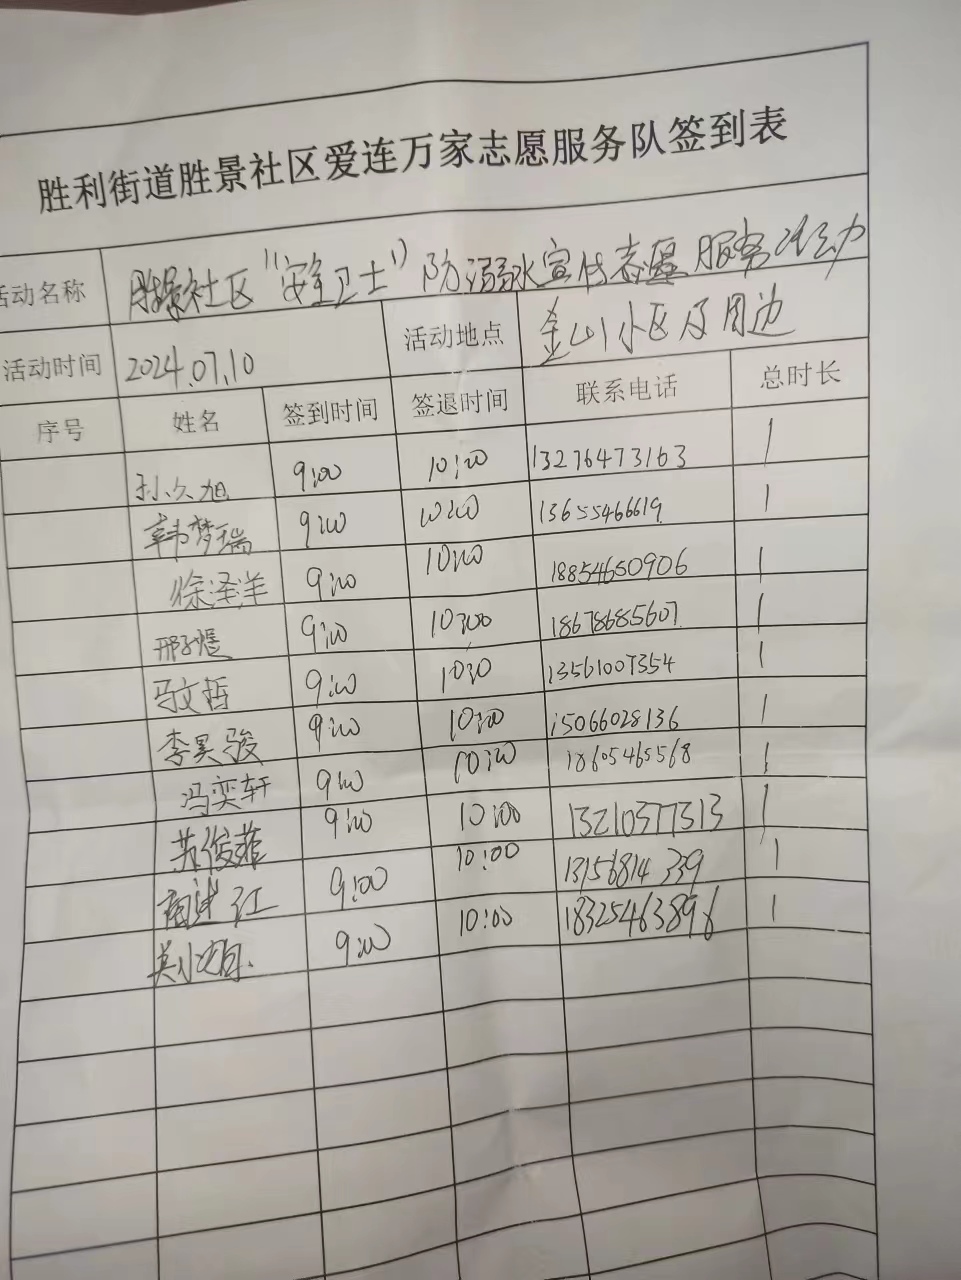 胜利街道胜景社区爱连万家志愿服务队签到表
活动名称 胜景社区“安全卫士”防溺水宣传志愿服务活动
活动时间 2024.07.10 活动地点 金山小区及周边
序号 姓名 签到时间 签退时间 联系电话 总时长
孙久旭 9:00 10:00 13276473163 1
韩梦瑞 9:00 10:00 13655466619 1
徐泽洋 9:00 10:00 18854650906 1
邢煜 9:00 10:00 18678685607 1
马文哲 9:00 10:00 13561007354 1
李昊骏 9:00 10:00 15066028136 1
冯奕轩 9:00 10:00 18605465568 1
苏俊菲 9:00 10:00 13210377313 1
9:00 10:00 13156814339 1
9:00 10:00 18325463896 1